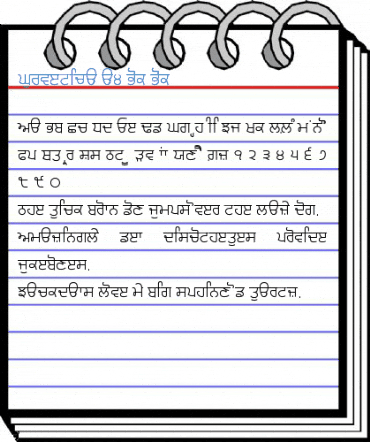 ਘ੍ਰਵੲਟਚਿੳ ੳ਼੪ ਭੋਕ ਭੋਕ
ਅੳ ਭਬ ਛਚ ਧਦ ਓੲ ਢਡ ਘਗ ੍ਹ ੀਿ ਝਜ ਖਕ ਲਲ਼ ੰਮ ਂਨੋੌ
ਫਪ ਬਤ੍ਰ ਸ਼ਸ ਠਟ ੂੁ ੜਵ ਾਂ ਯਣੈੇ ਗ਼ਜ਼ ੧ ੨ ੩ ੪ ੫ ੬ ੭
੮ ੯ ੦
ਠਹੲ ਤੁਚਿਕ ਬਰੋਾਨ ਡੋਣ ਜੁਮਪਸੋਵੲਰ ਟਹੲ ਲੳਜ਼ੇ ਦੋਗ.
ਅਮੳਜ਼ਨਿਗਲੇ ਡੲਾ ਦਸਿਚੋਟਹੲਤੁੲਸ ਪਰੋਵਦਿੲ
ਜੁਕੲਬੋਣੲਸ.
ਝੳਚਕਦੳਾਸ ਲੋਵੲ ਮੇ ਬਗਿ ਸਪਹਨਿਣੋਡ ਤੁੳਰਟਜ਼.